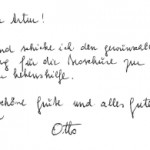 Artur!
schicke ich den gewünschten
für die Broschüre zur
Lebenshilfe.
schöne Grüße und alles Gute
Otto